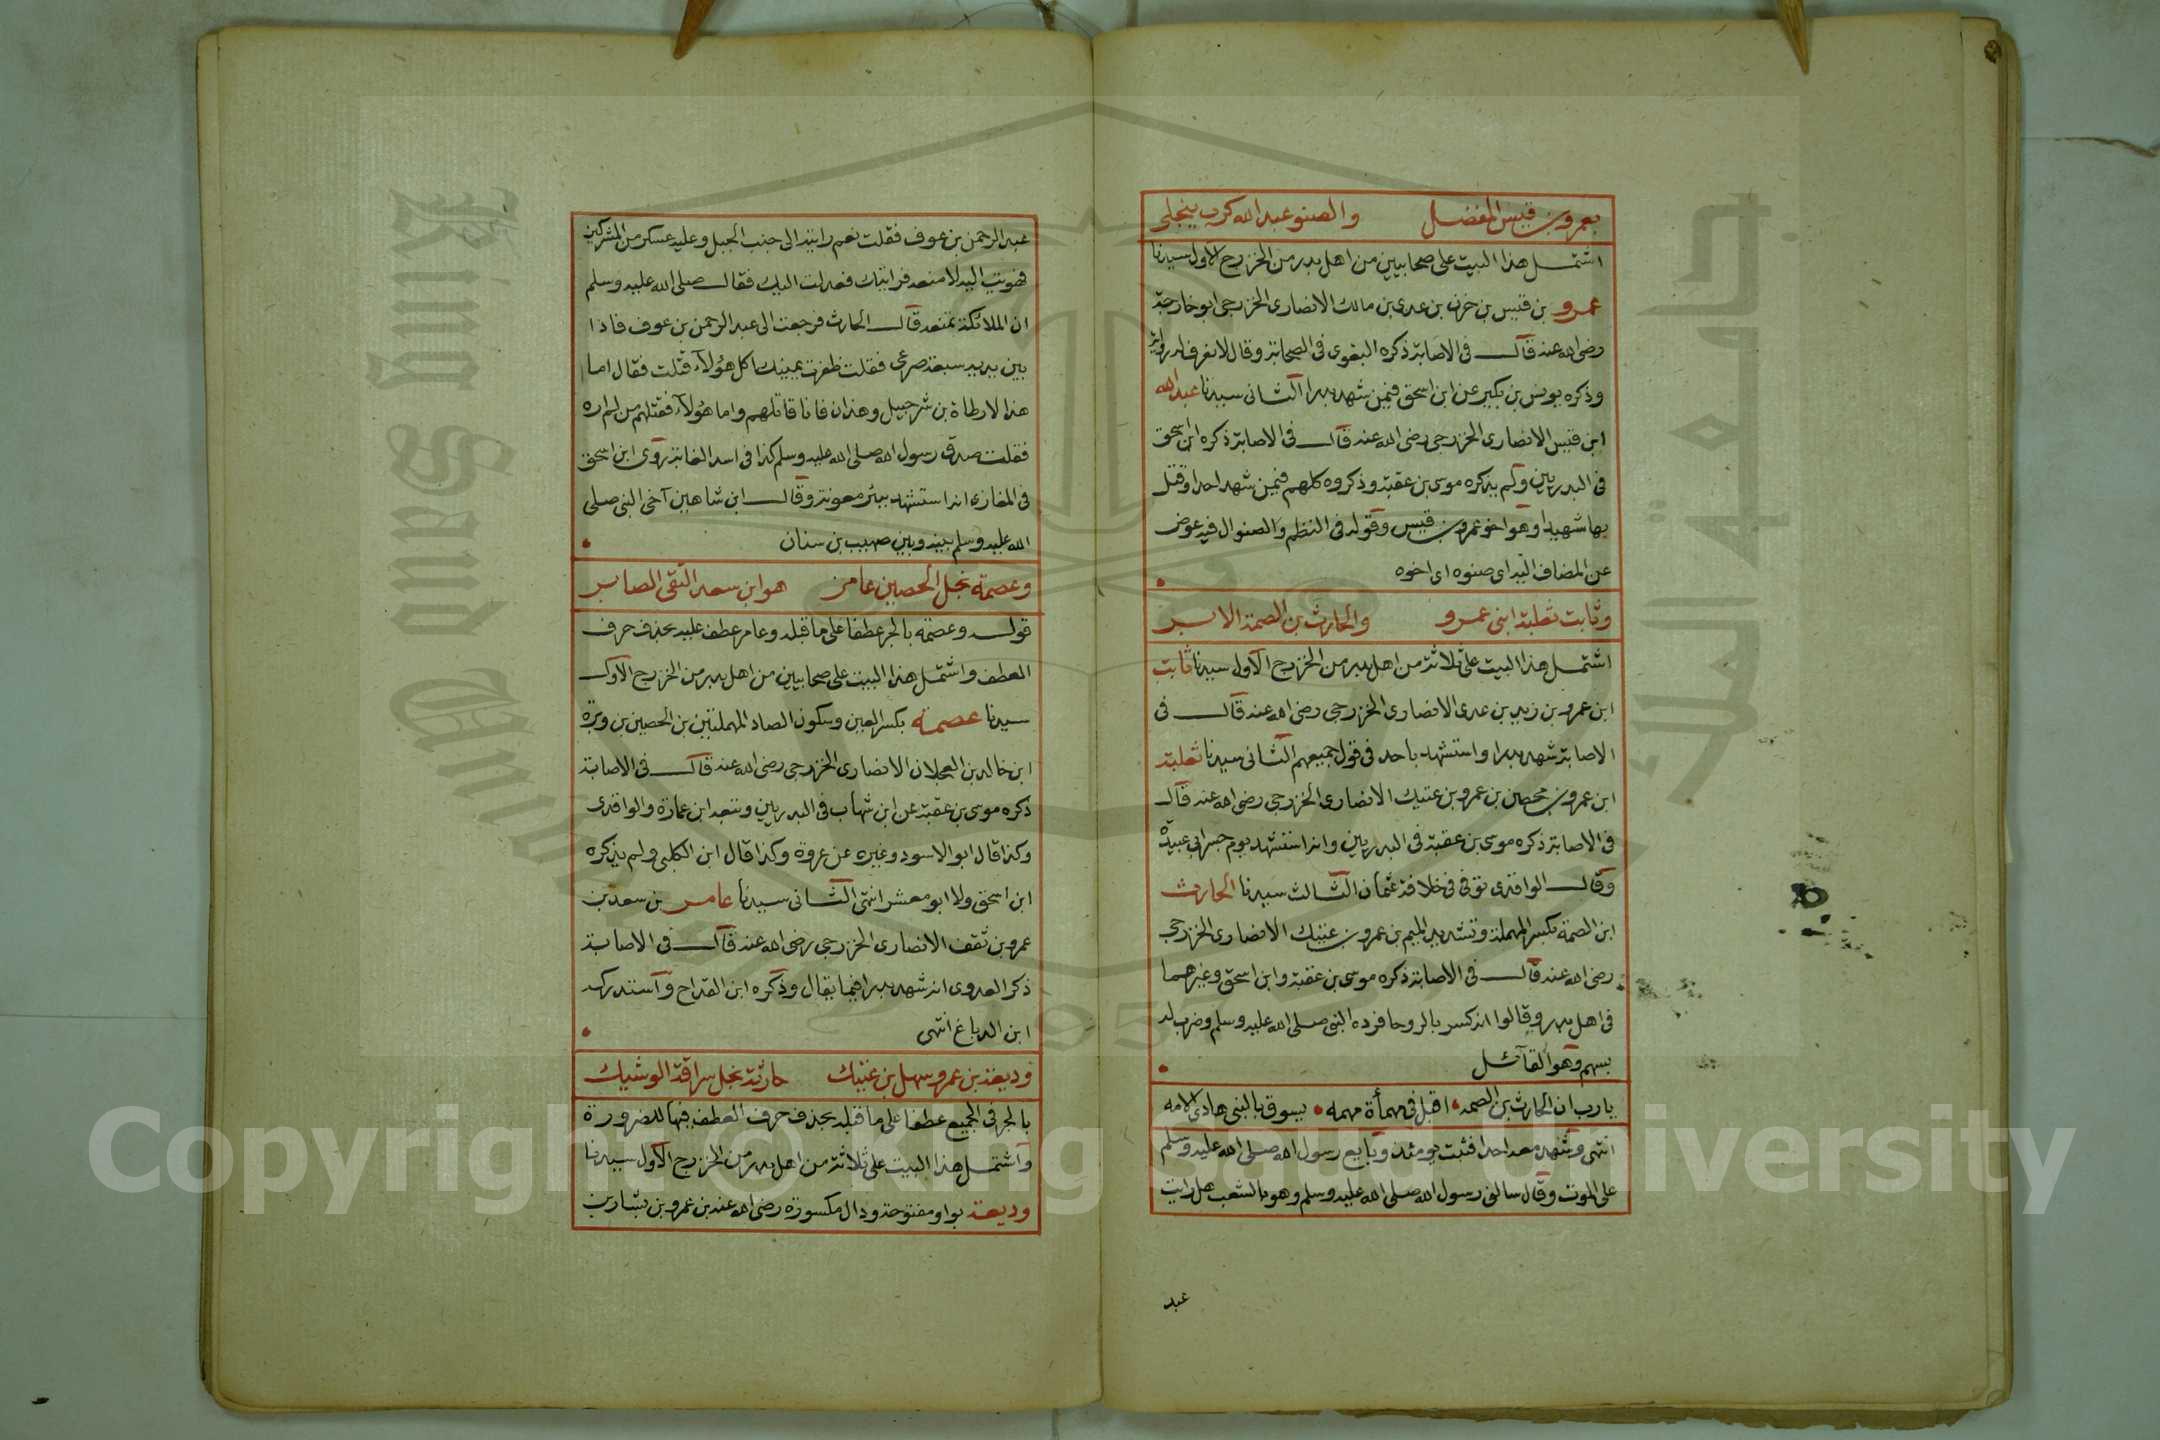 بعمرو بن قيس المفضل والصنو عبد الله كرب ينجلى
اشتمل هذا البيت على صحابيين من اهل بدر من الخزرج الاول سيدنا
عمرو بن قيس بن حزن بن عدى بن مالك الانصارى الخزرجى ابو خارجة
رضى الله عنه قال فى الاصابة ذكره البغوى فى الصحابة وقال لا نعرف له رواية
وذكره يونس بن بكير عن ابن اسحق فيمن شهد بدرا الثانى سيدنا عبد الله
ابن قيس الانصارى الخزرجى رضى الله عنه قال فى الاصابة ذكره ابن اسحق
فى البدريين ولم يذكره موسى بن عقبة وذكروه كلهم فيمن شهد احدا وقتل
بها شهيدا وهو اخو عمرو بن قيس وقوله فى النظم والصنو ال فيه عوض
عن المضاف اليه اى صنوه اى اخوه
وثابت ثعلبة ابنى عمرو والحارث بن الصمة الابر
اشتمل هذا البيت على ثلاثة من اهل بدر من الخزرج الاول سيدنا ثابت
ابن عمرو بن زيد بن عدى الانصارى الخزرجى رضى الله عنه قال فى
الاصابة شهد بدرا واستشهد باحد فى قول جميعهم الثانى سيدنا ثعلبة
ابن عمرو بن محصن بن عمرو بن عتيك الانصارى الخزرجى رضى الله عنه قال
فى الاصابة ذكره موسى بن عقبة فى البدريين وانه استشهد يوم جسر ابى عبيدة
وقال الواقدى توفى فى خلافة عثمان الثالث سيدنا الحارث
ابن الصمة بكسر المهملة وتشديد الميم بن عمرو بن عتيك الانصارى الخزرجى
رضى الله عنه قال فى الاصابة ذكره موسى بن عقبة وابن اسحق وغيرهما
فى اهل بدر وقالوا انه كسر بالروحا فرده النبى صلى الله عليه وسلم وضرب له
بسهم وهو القائل
يا رب ان الحارث بن الصمه اقبل فى مهمأة مهمه يسوق بالنبى هادى الامه
انتهى وشهد معه احدا فثبت يومئذ وبايع رسول الله صلى الله عليه وسلم
على الموت وقال سالنى رسول الله صلى الله عليه وسلم وهو بالشعب هل رايت
عبد
عبد الرحمن بن عوف فقلت نعم رايته الى جنب الجبل وعليه عسكر من المشركين
فهويت اليه لامنعه فرايتك فعدلت اليك فقال صلى الله عليه وسلم
ان الملائكة تمنعه قال الحارث فرجعت الى عبد الرحمن بن عوف فاذا
بين يديه سبعة صرعى فقلت ظفرت يمينك اكل هؤلاء قتلت فقال اما
هذا لارطاة بن شرحبيل وهذان فانا قاتلهم واما هؤلاء فقتلهم من لم اره
فقلت صدق رسول الله صلى الله عليه وسلم كذا فى اسد الغابة روى ابن اسحق
فى المغازى انه استشهد ببئر معونة وقال ابن شاهين آخى النبى صلى
الله عليه وسلم بينه وبين صهيب بن سنان
وعصمة نجل الحصين عامر هو ابن سعد التقى الصابر
قوله وعصمة بالجر عطفا على ما قبله وعامر عطف عليه بحذف حرف
العطف واشتمل هذا البيت على صحابيين من اهل بدر من الخزرج الاول
سيدنا عصمة بكسر العين وسكون الصاد المهملتين بن الحصين بن وبرة
ابن خالد بن العجلان الانصارى الخزرجى رضى الله عنه قال فى الاصابة
ذكره موسى بن عقبة عن ابن شهاب فى البدريين وتبعه ابن عمارة والواقدى
وكذا قال ابو الاسود وغيره عن عروة وكذا قال ابن الكلبى ولم يذكره
ابن اسحق ولا ابو معشر انتهى الثانى سيدنا عامر بن سعد بن
عمرو بن ثقف الانصارى الخزرجى رضى الله عنه قال فى الاصابة
ذكر العدوى انه شهد بدرا فيما يقال وذكره ابن القداح واستدركه
ابن الدباغ انتهى
وديعة بن عمرو سهل بن عتيك حارثة نجل سراقة الوشيك
بالجر فى الجميع عطفا على ما قبله بحذف حرف العطف فيها للضرورة
واشتمل هذا البيت على ثلاثة من اهل بدر من الخزرج الاول سيدنا
وديعة بواو مفتوحة ودال مكسورة رضى الله عنه بن عمرو بن يسار بن